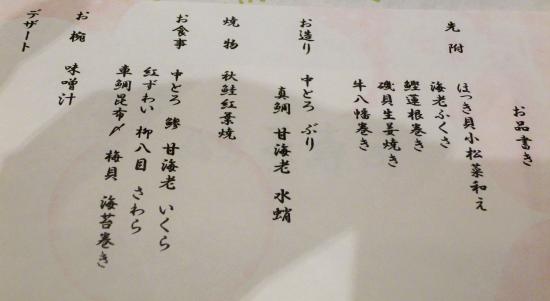 お品書き
先附
ほっき貝小松菜和え
海老ふくさ
鰹蓮根巻き
磯貝生姜焼き
牛八幡巻き
お造り
中とろ ぶり
真鯛 甘海老 水蛸
焼物
秋鮭紅葉焼
お食事
中とろ 鯵 甘海老 いくら
紅ずわい 柳八目 さわら
車鯛昆布〆 梅貝 海苔巻き
お椀
味噌汁
デザート